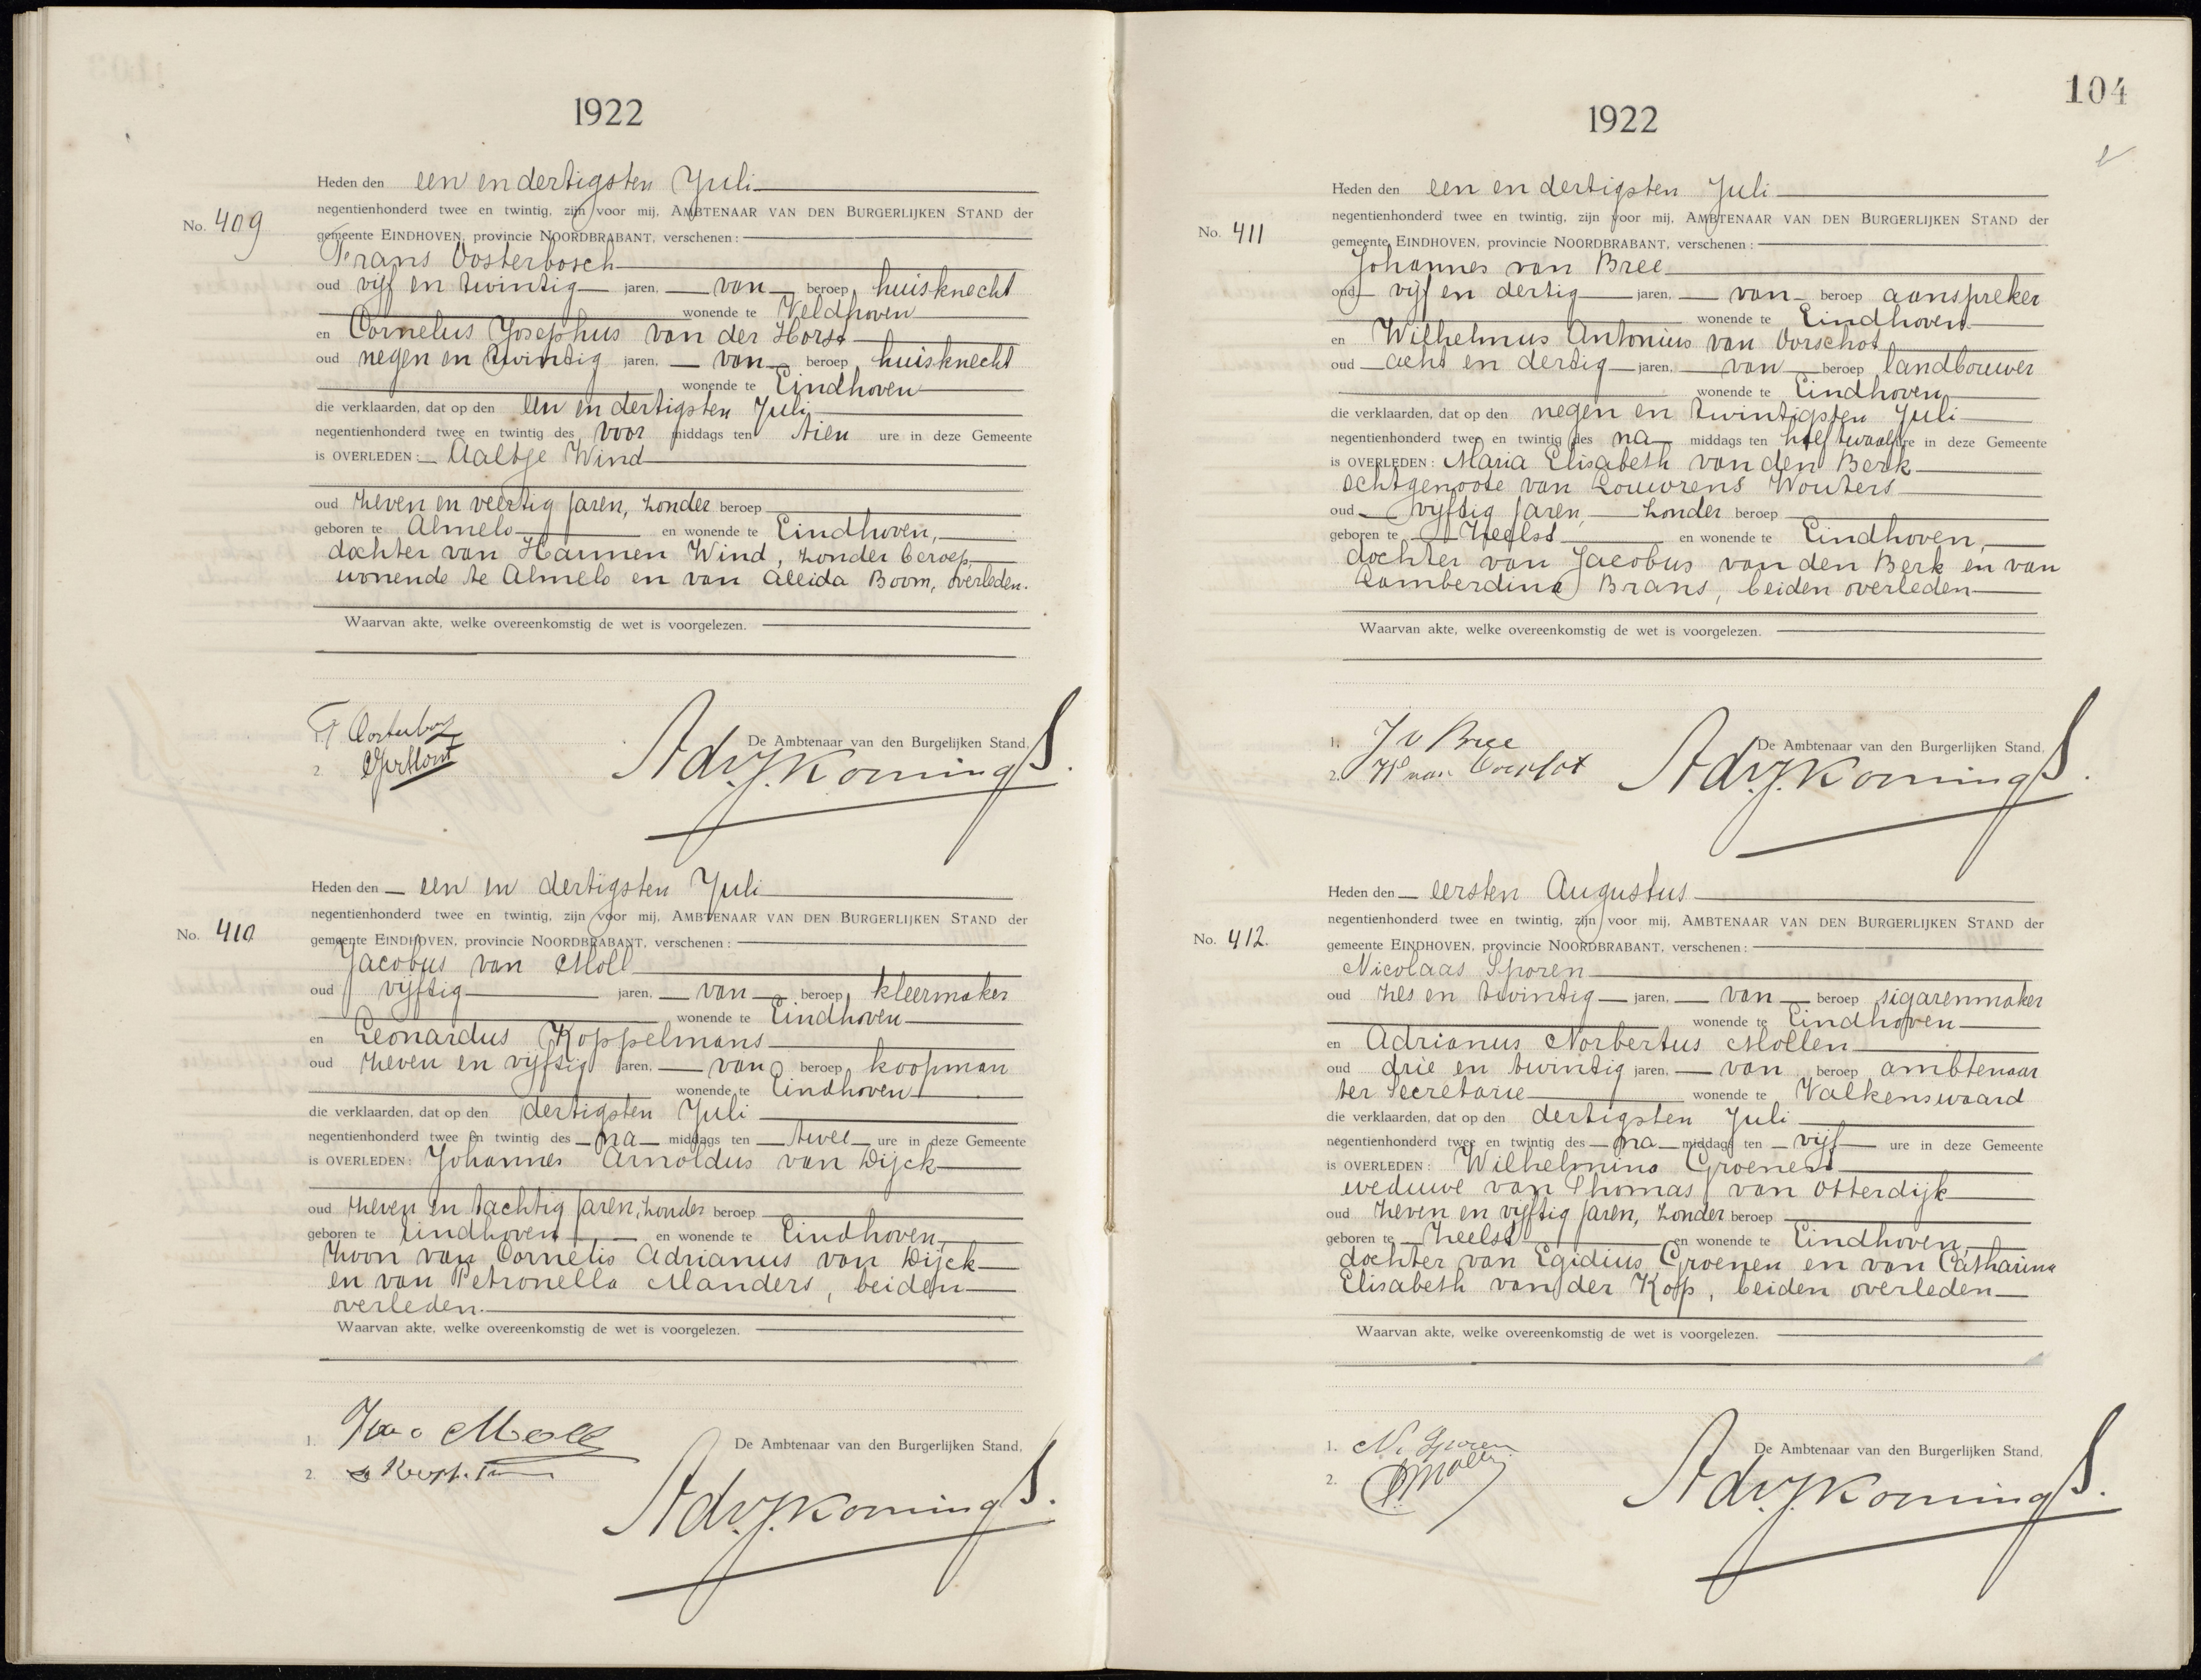 1922
Heden den een en dertigsten Juli
No. 409
negentienhonderd twee en twintig, zijn voor mij, AMBTENAAR VAN DEN BURGERLIJKEN STAND der
gemeente EINDHOVEN, provincie NOORDBRABANT, verschenen:
Frans Oosterbosch
oud vijf en twintig jaren, van beroep huisknecht
wonende te Veldhoven
en Cornelus Josephus van der Horst
oud negen en twintig jaren, van beroep huisknecht
wonende te Eindhoven
die verklaarden, dat op den een en dertigsten Juli
negentienhonderd twee en twintig des voor middags ten tien ure in deze Gemeente
is OVERLEDEN: Aaltje Wind
oud zeven en veertig jaren, zonder beroep
geboren te Almelo en wonende te Eindhoven,
dochter van Harmen Wind, zonder beroep,
wonende te Almelo en van Aleida Boom, overleden.
Waarvan akte, welke overeenkomstig de wet is voorgelezen.
De Ambtenaar van den Burgelijken Stand,
2.
Heden den een en dertigsten Juli
No. 410
negentienhonderd twee en twintig, zijn voor mij, AMBTENAAR VAN DEN BURGERLIJKEN STAND der
gemeente EINDHOVEN, provincie NOORDBRABANT, verschenen:
Jacobus van Moll
oud vijftig jaren, van beroep kleermaker
wonende te Eindhoven
en Leonardus Koppelmans
oud zeven en vijftig jaren, van beroep koopman
wonende te Eindhoven
die verklaarden, dat op den dertigsten Juli
negentienhonderd twee en twintig des na middags ten twee ure in deze Gemeente
is OVERLEDEN: Johannes Arnoldus van Dijck
oud zeven en tachtig jaren, zonder beroep
geboren te Eindhoven en wonende te Eindhoven,
zoon van Cornelis Adrianus van Dijck
en van Petronella Manders, beiden
overleden.
Waarvan akte, welke overeenkomstig de wet is voorgelezen.
1. Moll
De Ambtenaar van den Burgerlijken Stand,
2.
104
1922
Heden den een en dertigsten Juli
No. 411
negentienhonderd twee en twintig, zijn voor mij, AMBTENAAR VAN DEN BURGERLIJKEN STAND der
gemeente EINDHOVEN, provincie NOORDBRABANT, verschenen:
Johannes van Bree
oud vijf en dertig jaren, van beroep aanspreker
wonende te Eindhoven
en Wilhelmus Antonius van Oorschot
oud acht en dertig jaren, van beroep landbouwer
wonende te Eindhoven
die verklaarden, dat op den negen en twintigsten Juli
negentienhonderd twee en twintig des na middags ten half twaalf ure in deze Gemeente
is OVERLEDEN: Maria Elisabeth van den Berk
echtgenoote van Louwrens Wouters
oud vijftig jaren, zonder beroep
geboren te Zeelst en wonende te Eindhoven,
dochter van Jacobus van den Berk en van
Lamberdina Brans, beiden overleden
Waarvan akte, welke overeenkomstig de wet is voorgelezen.
1. J v Bree
De Ambtenaar van den Burgerlijken Stand,
2. W van Oorschot
Heden den eersten Augustus
No. 412.
negentienhonderd twee en twintig, zijn voor mij, AMBTENAAR VAN DEN BURGERLIJKEN STAND der
gemeente EINDHOVEN, provincie NOORDBRABANT, verschenen:
Nicolaas Sporen
oud zes en twintig jaren, van beroep sigarenmaker
wonende te Eindhoven
en Adrianus Norbertus Mollen
oud drie en twintig jaren, van beroep ambtenaar
ter Secretarie wonende te Valkenswaard
die verklaarden, dat op den dertigsten Juli
negentienhonderd twee en twintig des na middags ten vijf ure in deze Gemeente
is OVERLEDEN: Wilhelmina Groenen
weduwe van Thomas van Otterdijk
oud zeven en vijftig jaren, zonder beroep
geboren te Zeelst en wonende te Eindhoven,
dochter van Egidius Groenen en van Catharina
Elisabeth van der Kop, beiden overleden
Waarvan akte, welke overeenkomstig de wet is voorgelezen.
1. N. Sporen
De Ambtenaar van den Burgerlijken Stand,
2. Mollen